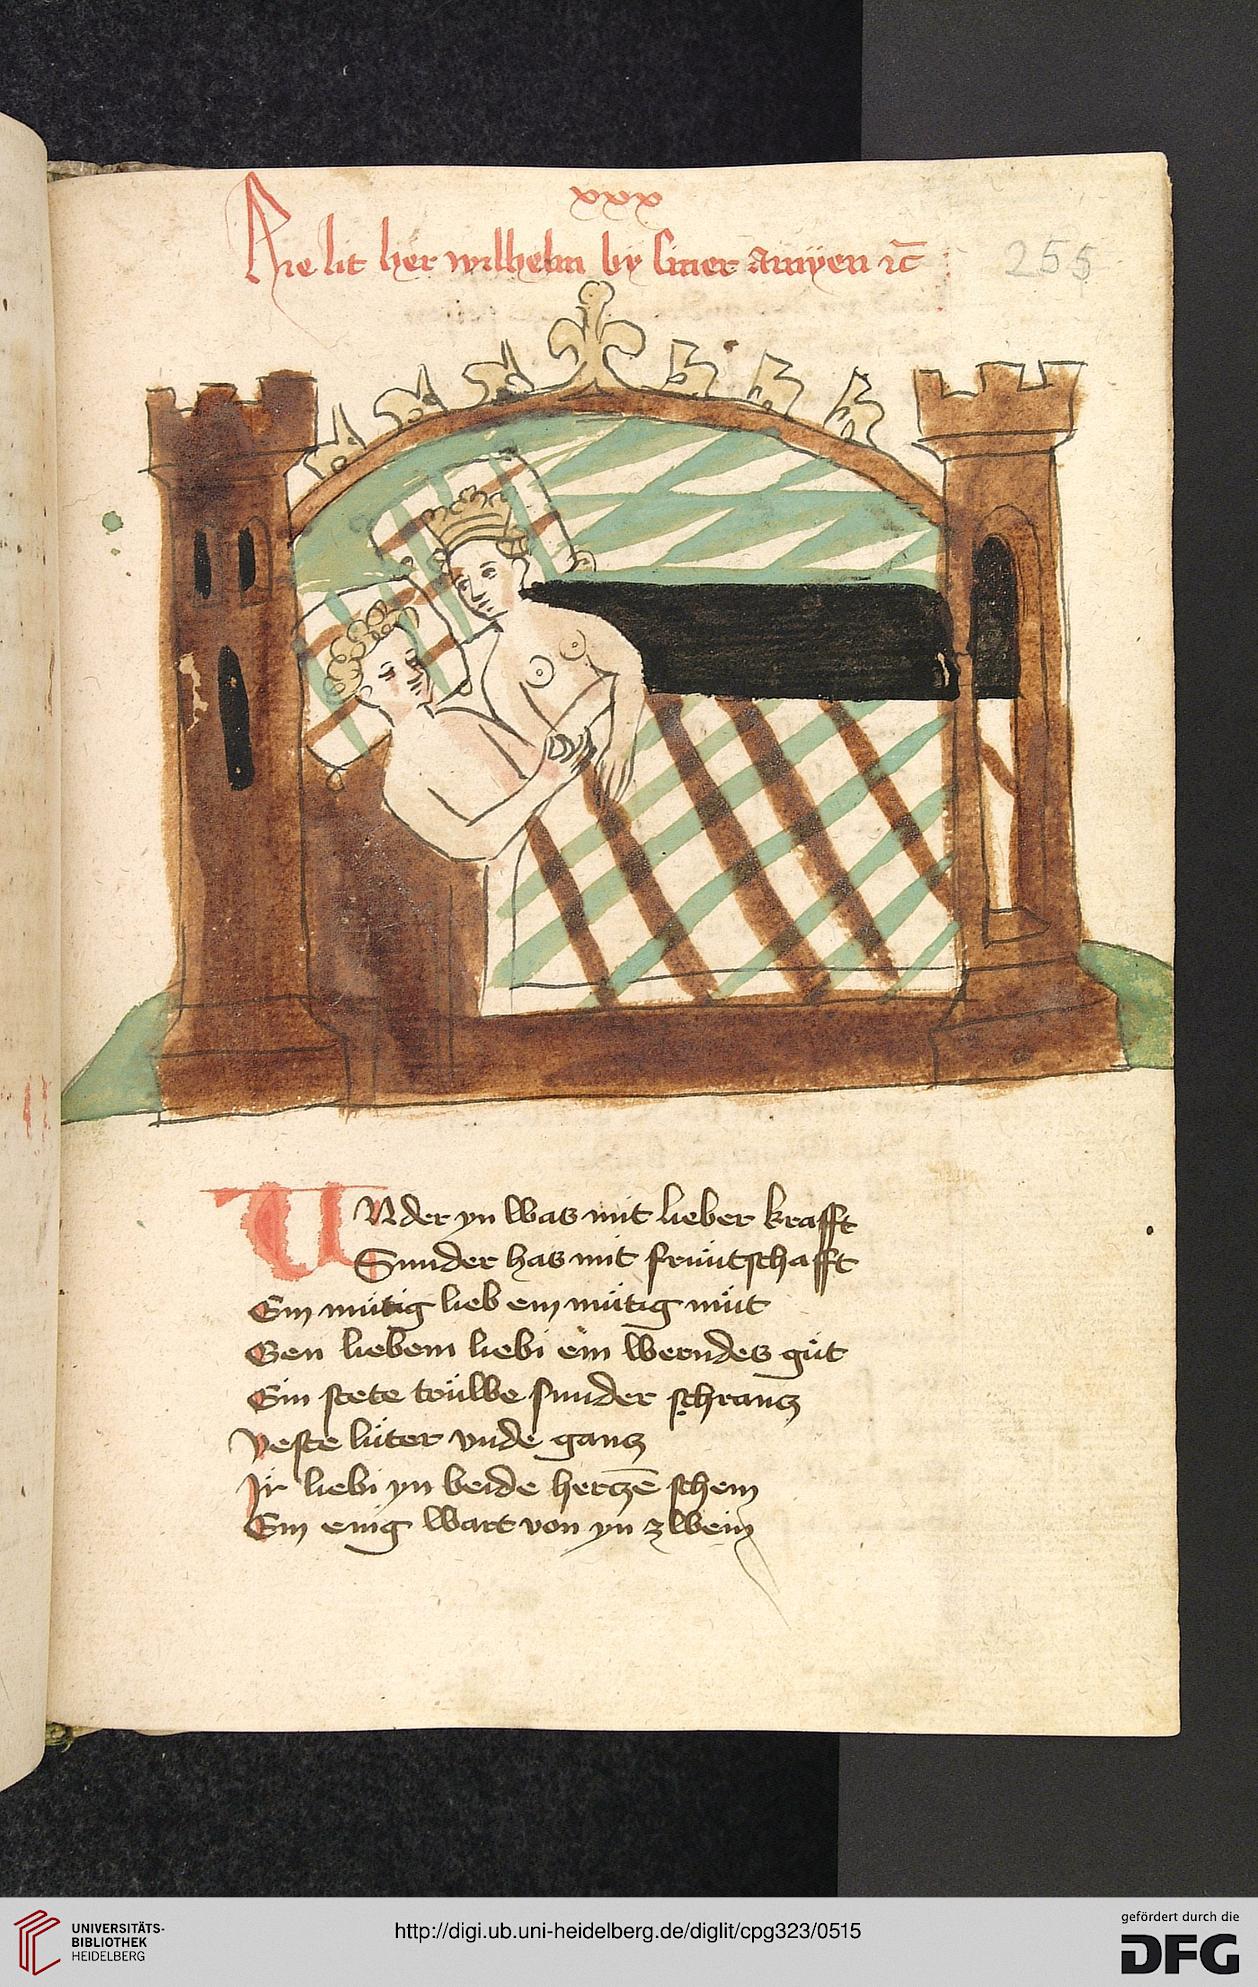 xxx
Hie lit her wilhelm by siner Amÿen ꝛc̄
255
UNder yn was mit lieber krafft
Sunder has mit frùntschafft
Ein mùtig lieb ein mùtig mùt
Gen liebem liebi ein werndes gùt
Ein stete trùlwe sunder schrantz
Veste lùter vnde gantz
Jr liebi yn beide hertzē schein
Ein einig wart von yn zwein
UNIVERSITÄTS-
BIBLIOTHEK
HEIDELBERG
http://digi.ub.uni-heidelberg.de/diglit/cpg323/0515
gefördert durch die
DFG